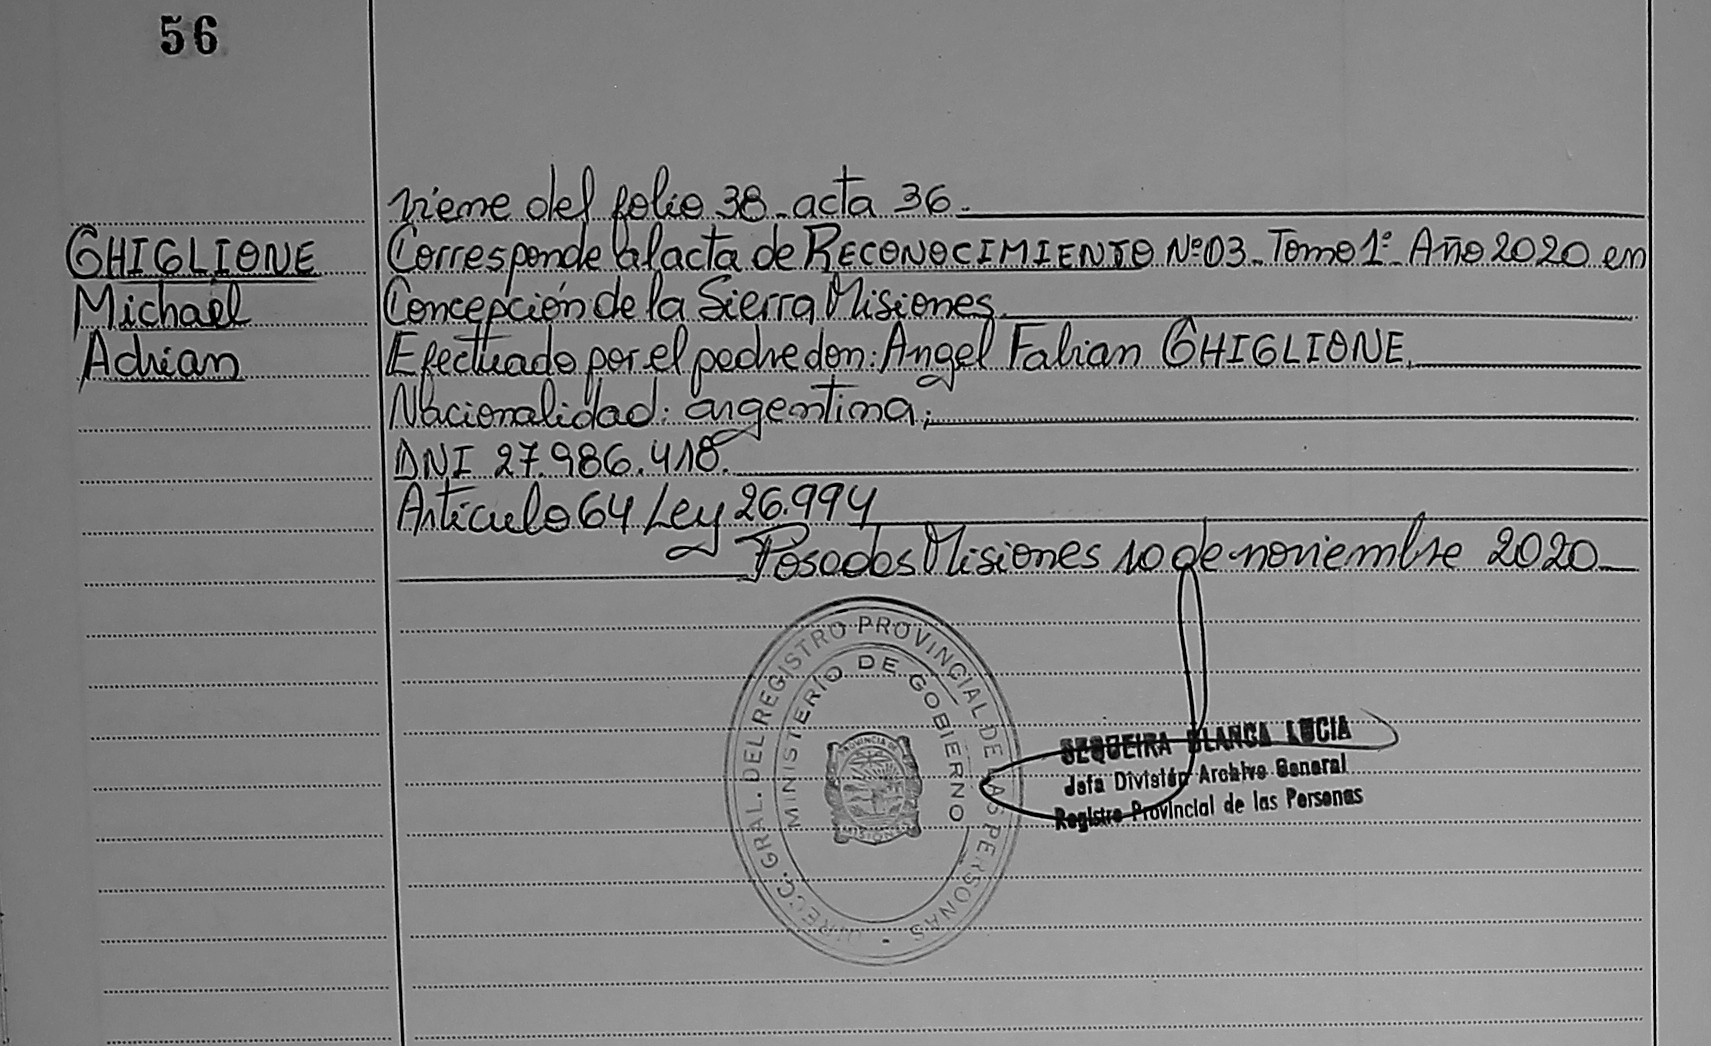 56
viene del folio 38 - acta 36.
GHIGLIONE
Michael
Adrian
Corresponde al acta de RECONOCIMIENTO Nº03 - Tomo 1º - Año 2020 en
Concepción de la Sierra Misiones.
Efectuado por el padre don: Angel Fabian GHIGLIONE.
Nacionalidad: argentina;
DNI 27.986.418.
Artículo 64 Ley 26.994
Posadas Misiones 10 de noviembre 2020
DIRECC. GRAL. DEL REGISTRO PROVINCIAL DE LAS PERSONAS
MINISTERIO DE GOBIERNO
PROVINCIA DE
MISIONES
SEQUEIRA BLANCA LUCIA
Jefa División Archivo General
Registro Provincial de las Personas